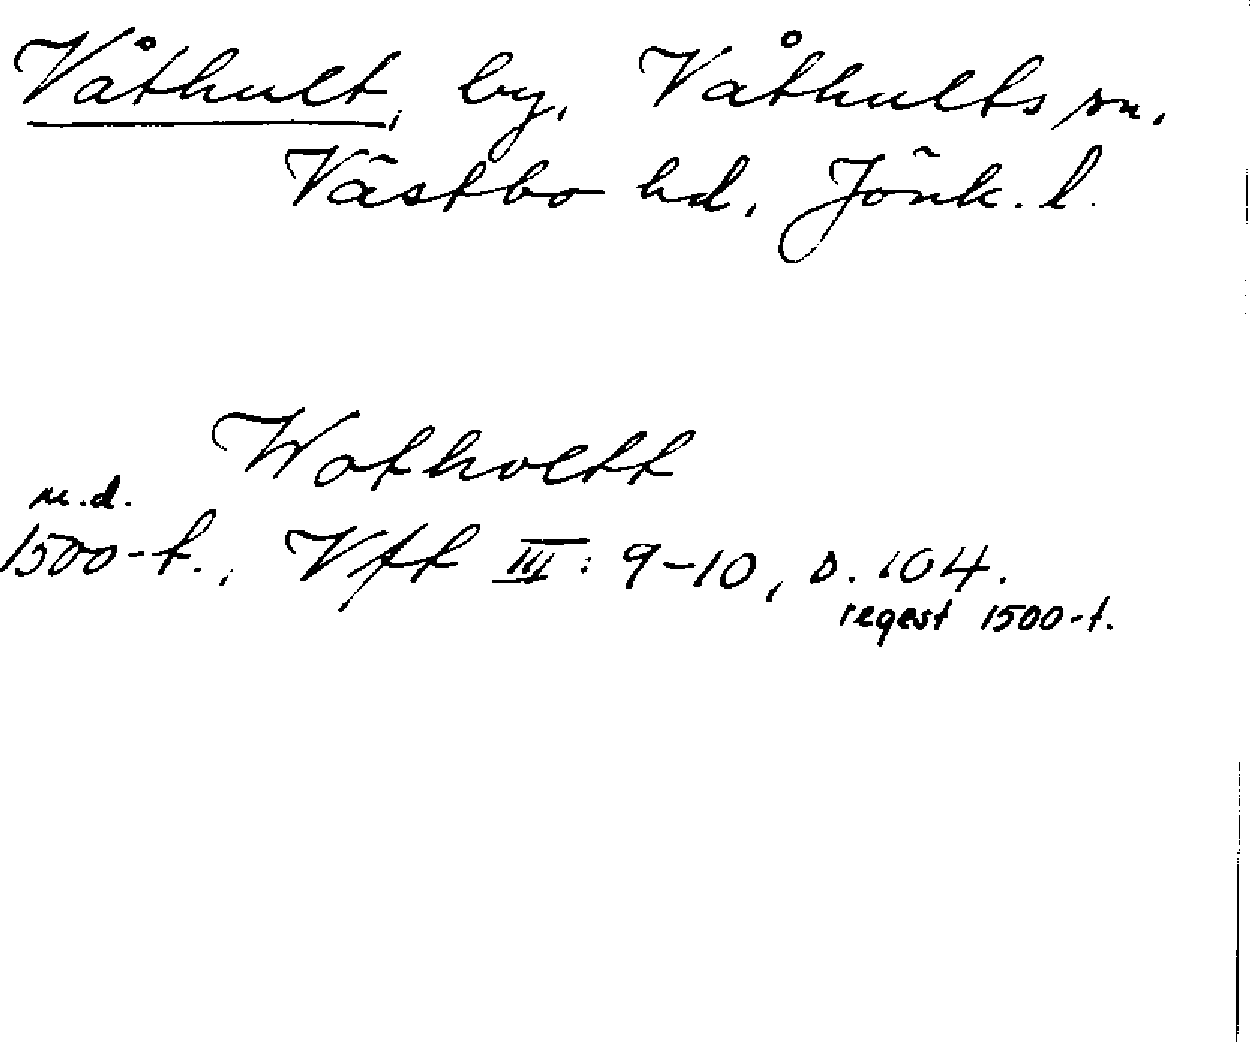 Våthult, by, Våthults sn.
Västbo hd, Jönk. l.
Wotholtt
u.d.
1500-t., Vff III: 9-10, s. 104.
regest 1500-t.